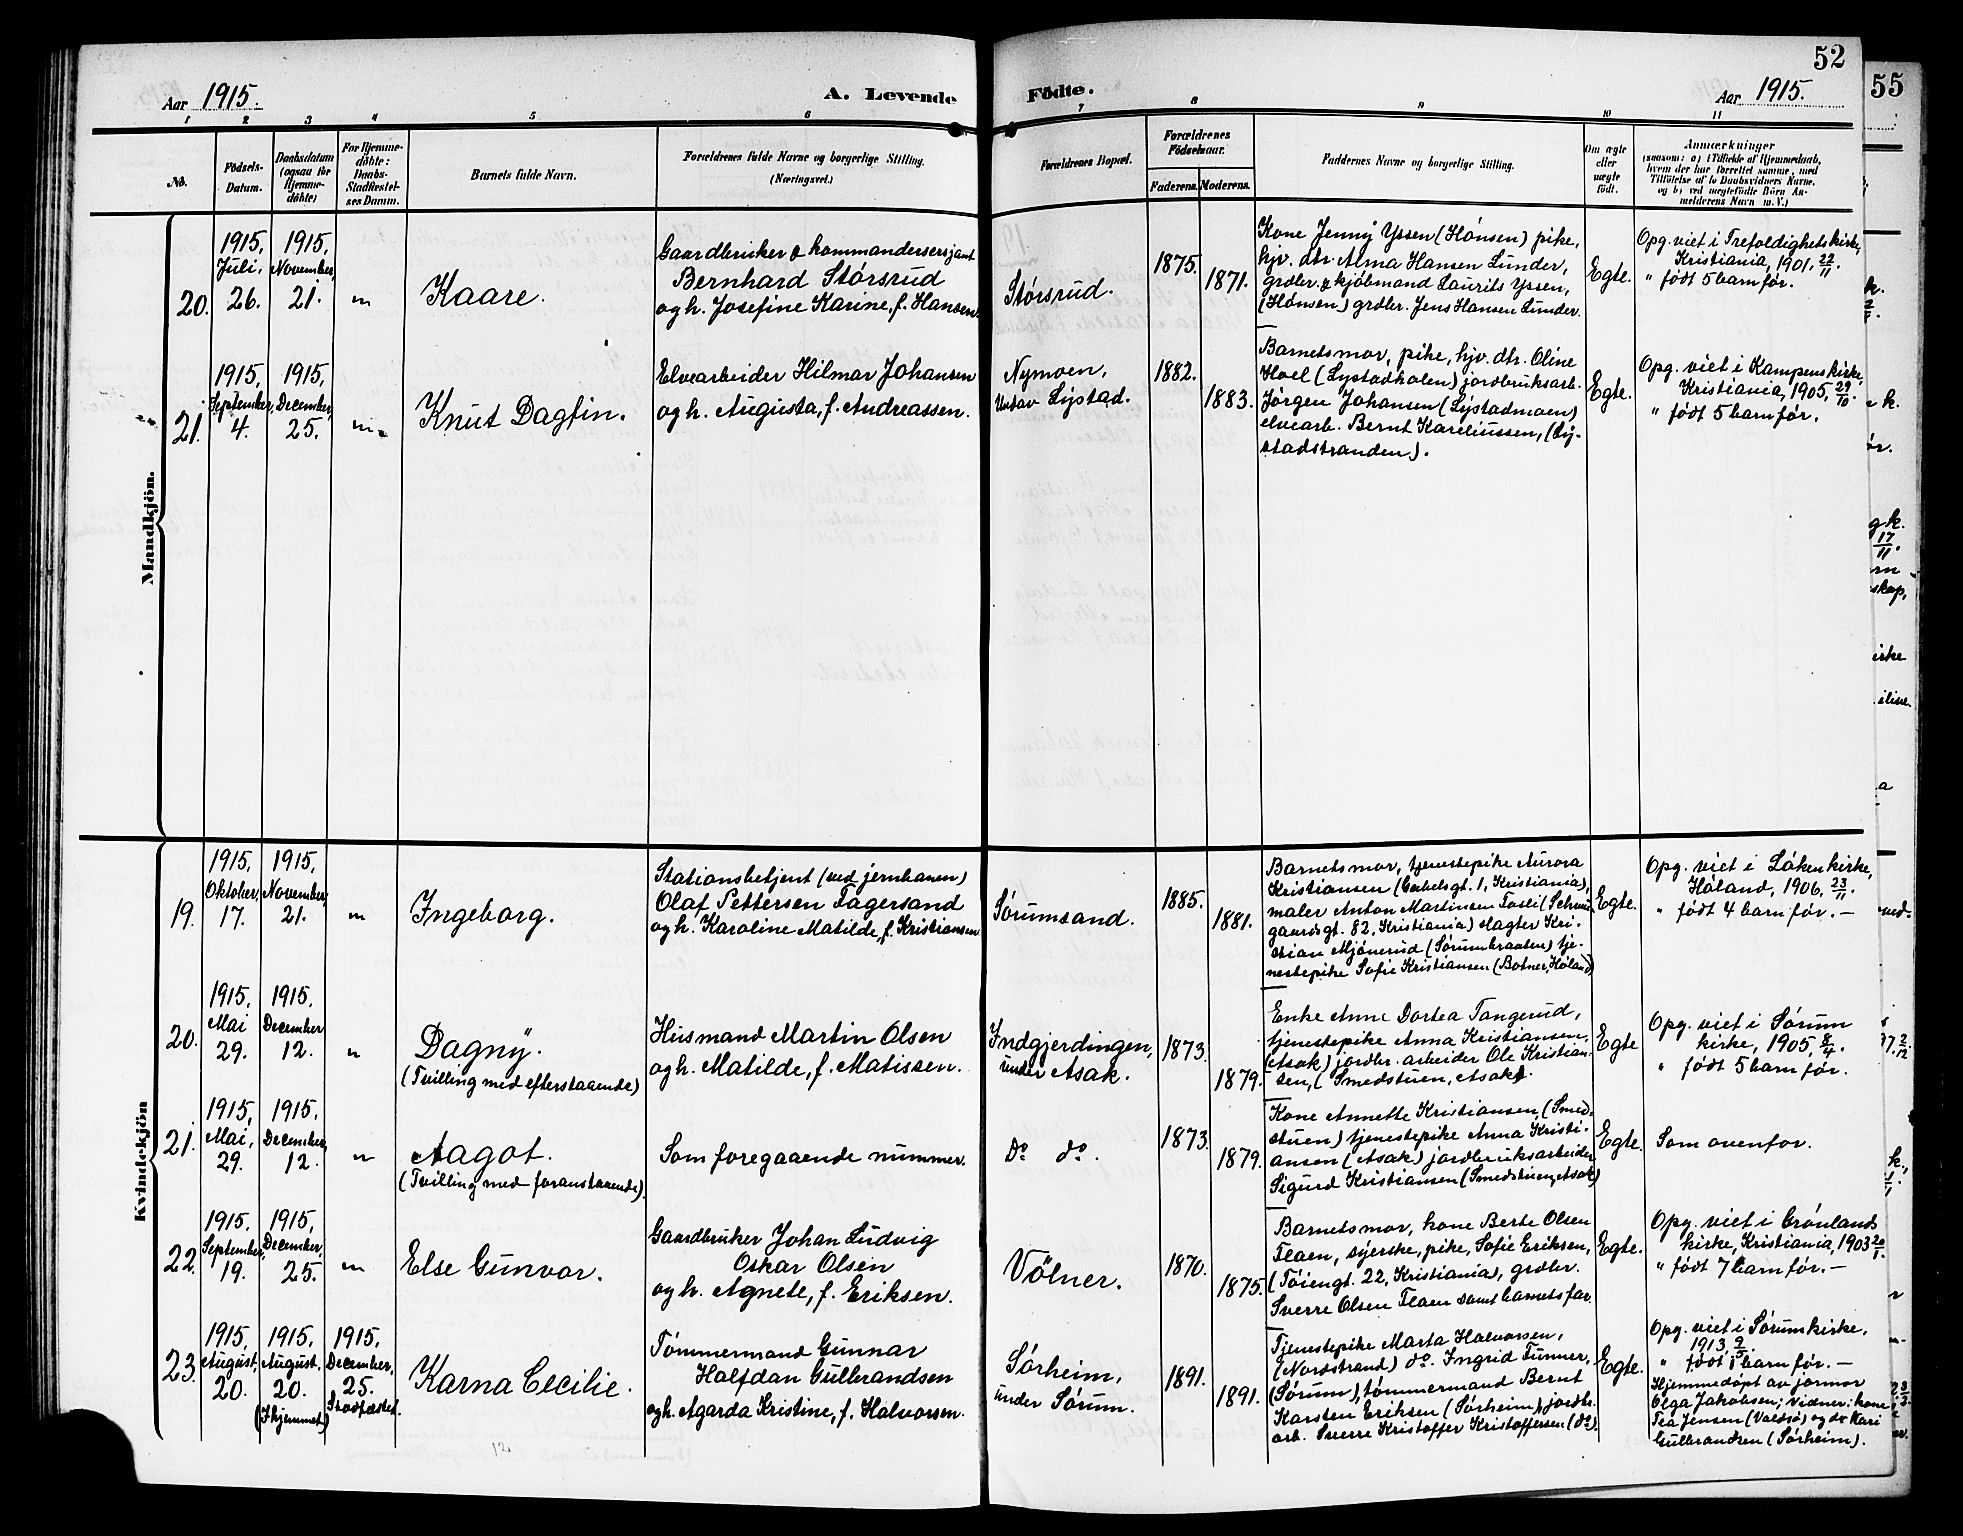 52
55
Aar 1915.
A. Levende Fødte.
Aar 1915.
1 2 3 4 5 6 7 8 9 10 11
No.
Fødsels-
Datum.
Daabsdatum
(ogsaa for
Hjemme-
døbte)
For Hjemme-
døbte:
Daabs-
Stadfæstel-
ses Datum.
Barnets fulde Navn.
Forældrenes fulde Navne og borgerlige Stilling.
(Næringsvei.)
Forældrenes Bopæl.
Forældrenes
Fødselsaar.
Faderens. Moderens.
Faddernes Navne og borgerlige Stilling.
Om ægte
eller
uægte
født.
Anmærkninger
(saasom: a) i Tilfælde af Hjemmedaab,
hvem der har forrettet samme, med
Tilføielse af to Daabsvidners Navne,
og b) ved uægtefødte Børn An-
melderens Navn m. V.)
Mandkjön.
20.
1915,
Juli,
26.
1915,
November,
21.
"
Kaare.
Gaardbruker & kommandersersjant
Bernhard Størsrud
og h. Josefine Karine, f. Hansen.
Størsrud.
1875.
1871.
Kone Jenny Yssen (Hønsen) pike,
hjv. dtr. Alma Hansen Lunder,
grdbr. & kjøbmand Laurits Yssen,
(Hønsen) grdbr. Jens Hansen Lunder.
Egte.
Opg. viet i Trefoldighetskirke,
Kristiania, 1901, 22/11.
" født 5 barn før.
21.
1915,
September,
4.
1915,
December,
25.
"
Knut Dagfin.
Elvearbeider Hilmar Johansen
og h. Augusta, f. Andreassen.
Nymoen,
under Lystad.
1882.
1883.
Barnets mor, pike, hjv. dtr. Oline
Hoel (Lystadholen) jordbruksarb.
Jørgen Johansen (Lystadmoen)
elvearb. Bernt Kareliussen, (Ly-
stadstranden).
Egte.
Opg. viet i Kampens kirke,
Kristiania, 1905, 29/10.
" født 5 barn før.
Kvindekjön
19.
1915,
Oktober,
17.
1915,
November,
21.
"
Ingeborg.
Stationsbetjent (ved jernbanen)
Olaf Pettersen Fagersand
og h. Karoline Matilde, f. Kristiansen
Sørumsand.
1885.
1881.
Barnets mor, tjenestepike Aurora
Kristiansen (      gt. 1, Kristiania),
maler Anton Martinsen Fosli (Schwei-
gaardsgt. 82, Kristiania) slagter Kri-
stian Mjønerud (Sørumbraaten) tje-
nestepike Sofie Kristiansen (Botner, Høland)
Egte.
Opg. viet i Løken kirke,
Høland, 1906, 23/11.
" født 4 barn før. –
20.
1915,
Mai
29.
1915.
December
12.
"
Dagny.
(Tvilling med efterstaaende)
Husmand Martin Olsen
og h. Matilde, f. Matissen.
Indgjerdingen,
under Asak.
1873.
1879.
Enke Anne Dortea Tangerud,
tjenestepike Anna Kristiansen,
(Asak) jordbr. arbeider Ole Kristian-
sen, (Smedstuen, Asak).
Egte
Opg. viet i Sørum
kirke, 1905, 8/4.
" født 5 barn før.
21.
1915,
Mai,
29.
1915.
December,
12.
"
Aagot.
(Tvilling med foranstaaende).
Som foregaaende nummer.
Do do.
1873.
1879.
Kone Annette Kristiansen, (Smed-
stuen) tjenestepike Anna Kristi-
ansen (Asak) jordbruksarbeider
Sigurd Kristiansen (Smedstuen, Asak)
Egte.
Som ovenfor.
22.
1915.
September,
19.
1915,
December,
25.
"
Else Gunvor.
Gaardbruker Johan Ludvig
Oskar Olsen
og h. Agnete, f. Eriksen.
Vølner.
1870.
1875.
Barnets mor, kone Berte Olsen
Flaen, syerske, pike, Sofie Eriksen,
(Tøiengt. 22, Kristiania), grdbr.
Sverre Olsen Flaen samt barnets far.
Egte.
Opg. viet i Grønlands
kirke, Kristiania, 1903 20/1.
" født 7 barn før. –
23.
1915.
August,
20.
1915.
August.
20.
(I hjemmet)
1915.
December,
25.
Stadfæstet.
Karna Cecilie.
Tømmermand Gunnar
Halfdan Gulbrandsen
og h. Agarda Kristine, f. Halvorsen.
Sørheim,
under Sørum.
1891.
1891.
Tjenestepike Marta Halvorsen,
(Nordstrand) do. Ingrid Tunner,
(Sørum), tømmermand Bernt
Karsten Eriksen (Sørheim), jordbr.
arb. Sverre Kristoffer Kristoffersen (do).
Egte.
Opg. viet i Sørum kirke,
1913, 9/3.
" født 1 barn før. –
Hjemmedøpt av jormor
Olga Jakobsen; Vidner: kone
Tea Jensen (Valdsø) og do Kari
Gulbrandsen (Sørheim).